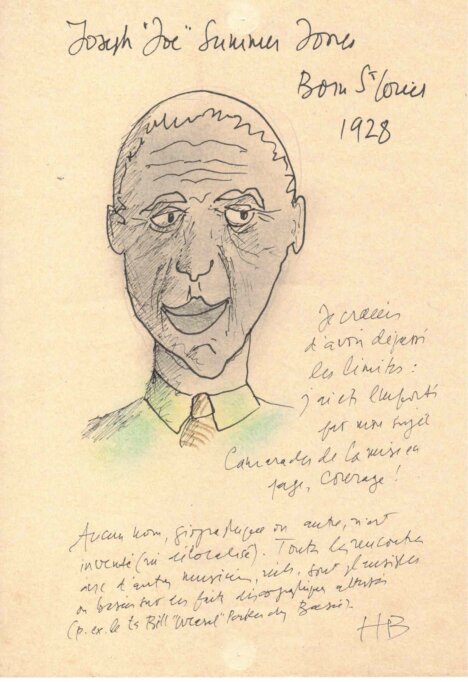 Joseph "Joe" Summer Jones
Born St Louis
1928
Je crains
d'avoir dépassé
les limites :
j'ai été emporté
par mon sujet
Camarades de la mise en
page, courage !
Aucun nom, géographique ou autre, n'est
inventé (ni délocalisé). Toutes les rencontres
avec d'autres musiciens, réels, sont plausibles
ou basées sur les faits discographiques attestés
(p. ex. le ts Bill "Weasel" Parker chez Basie).
HB